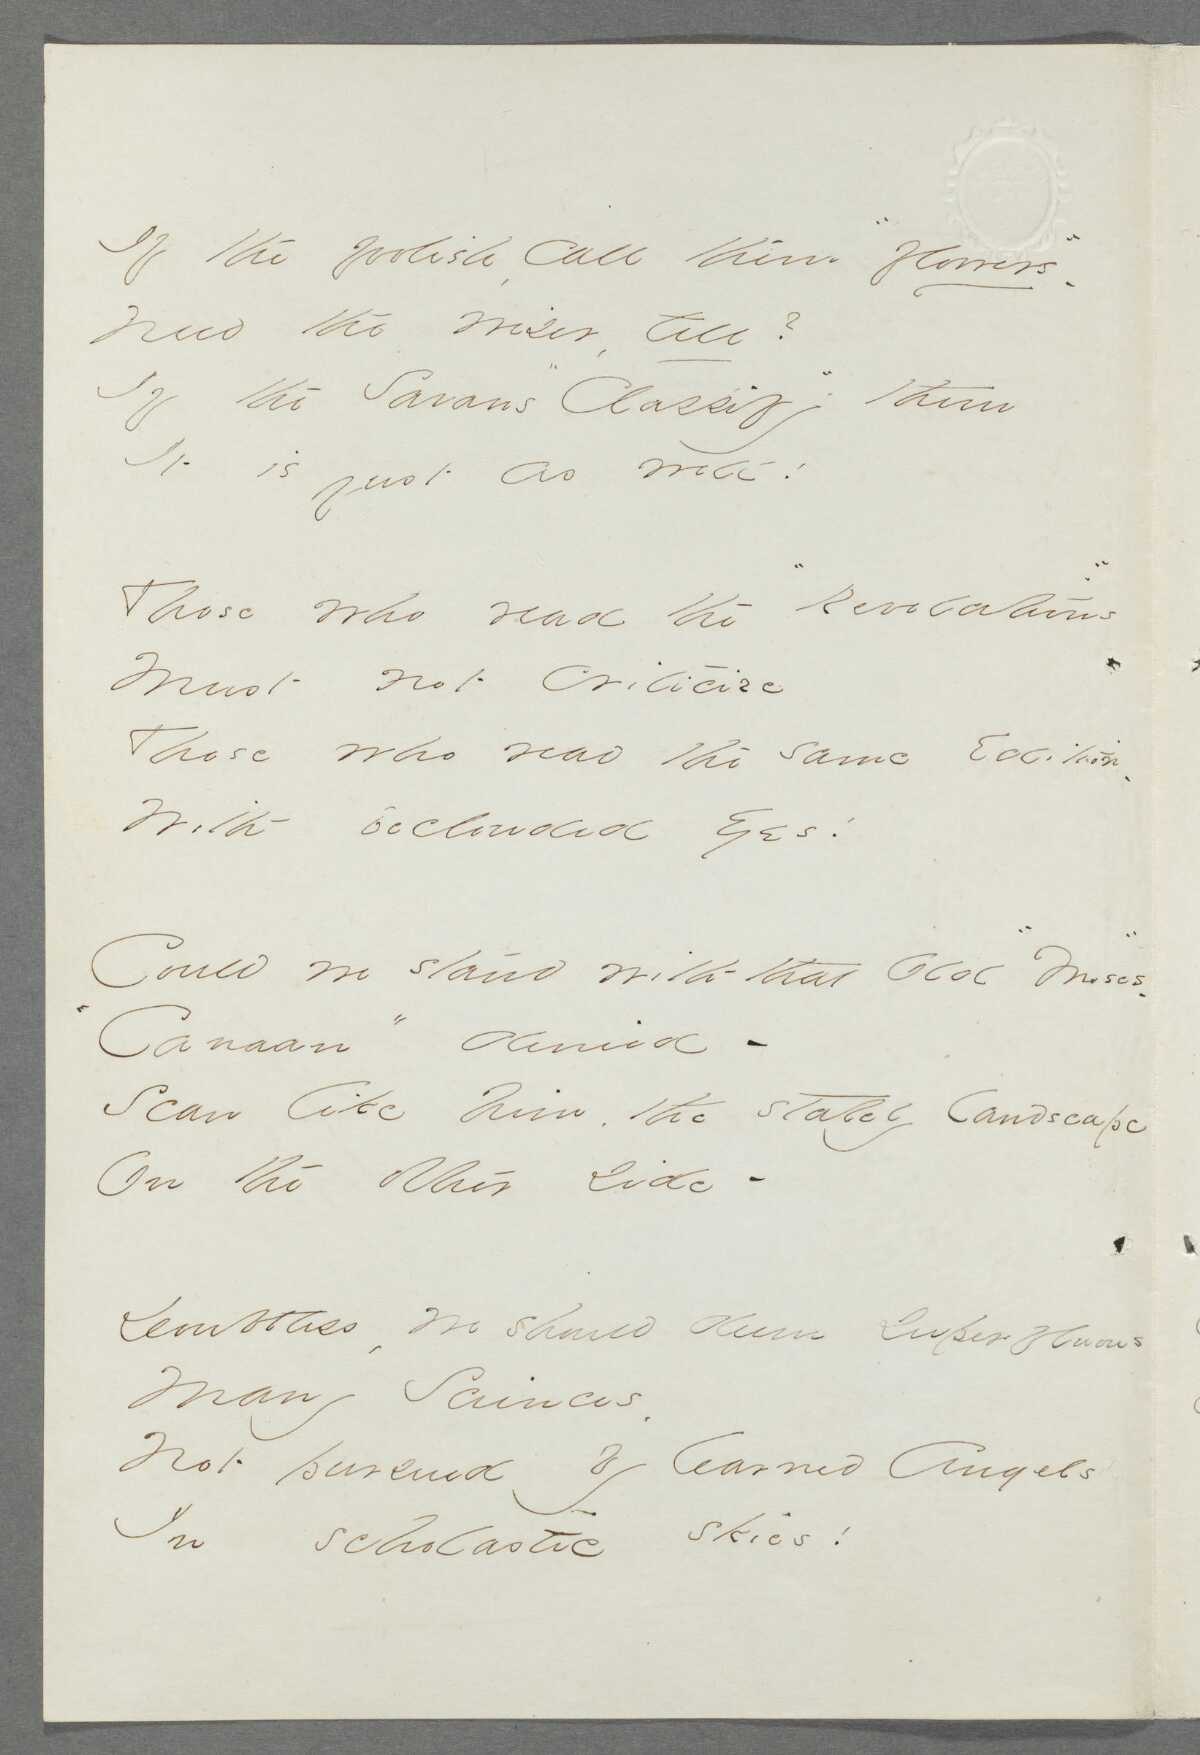 If the foolish, call them "flowers" -
Need the wiser, tell?
If the Savans "Classify" them
It is just as well!
Those who read the "Revelations"
Must not criticize
Those who read the same Edition -
With beclouded Eyes!
Could we stand with that Old "Moses" -
"Canaan" denied -
Scan like him, the stately landscape
On the other side -
Doubtless, we should deem superfluous
Many Sciences,
Not pursued by learned Angels
In scholastic skies!